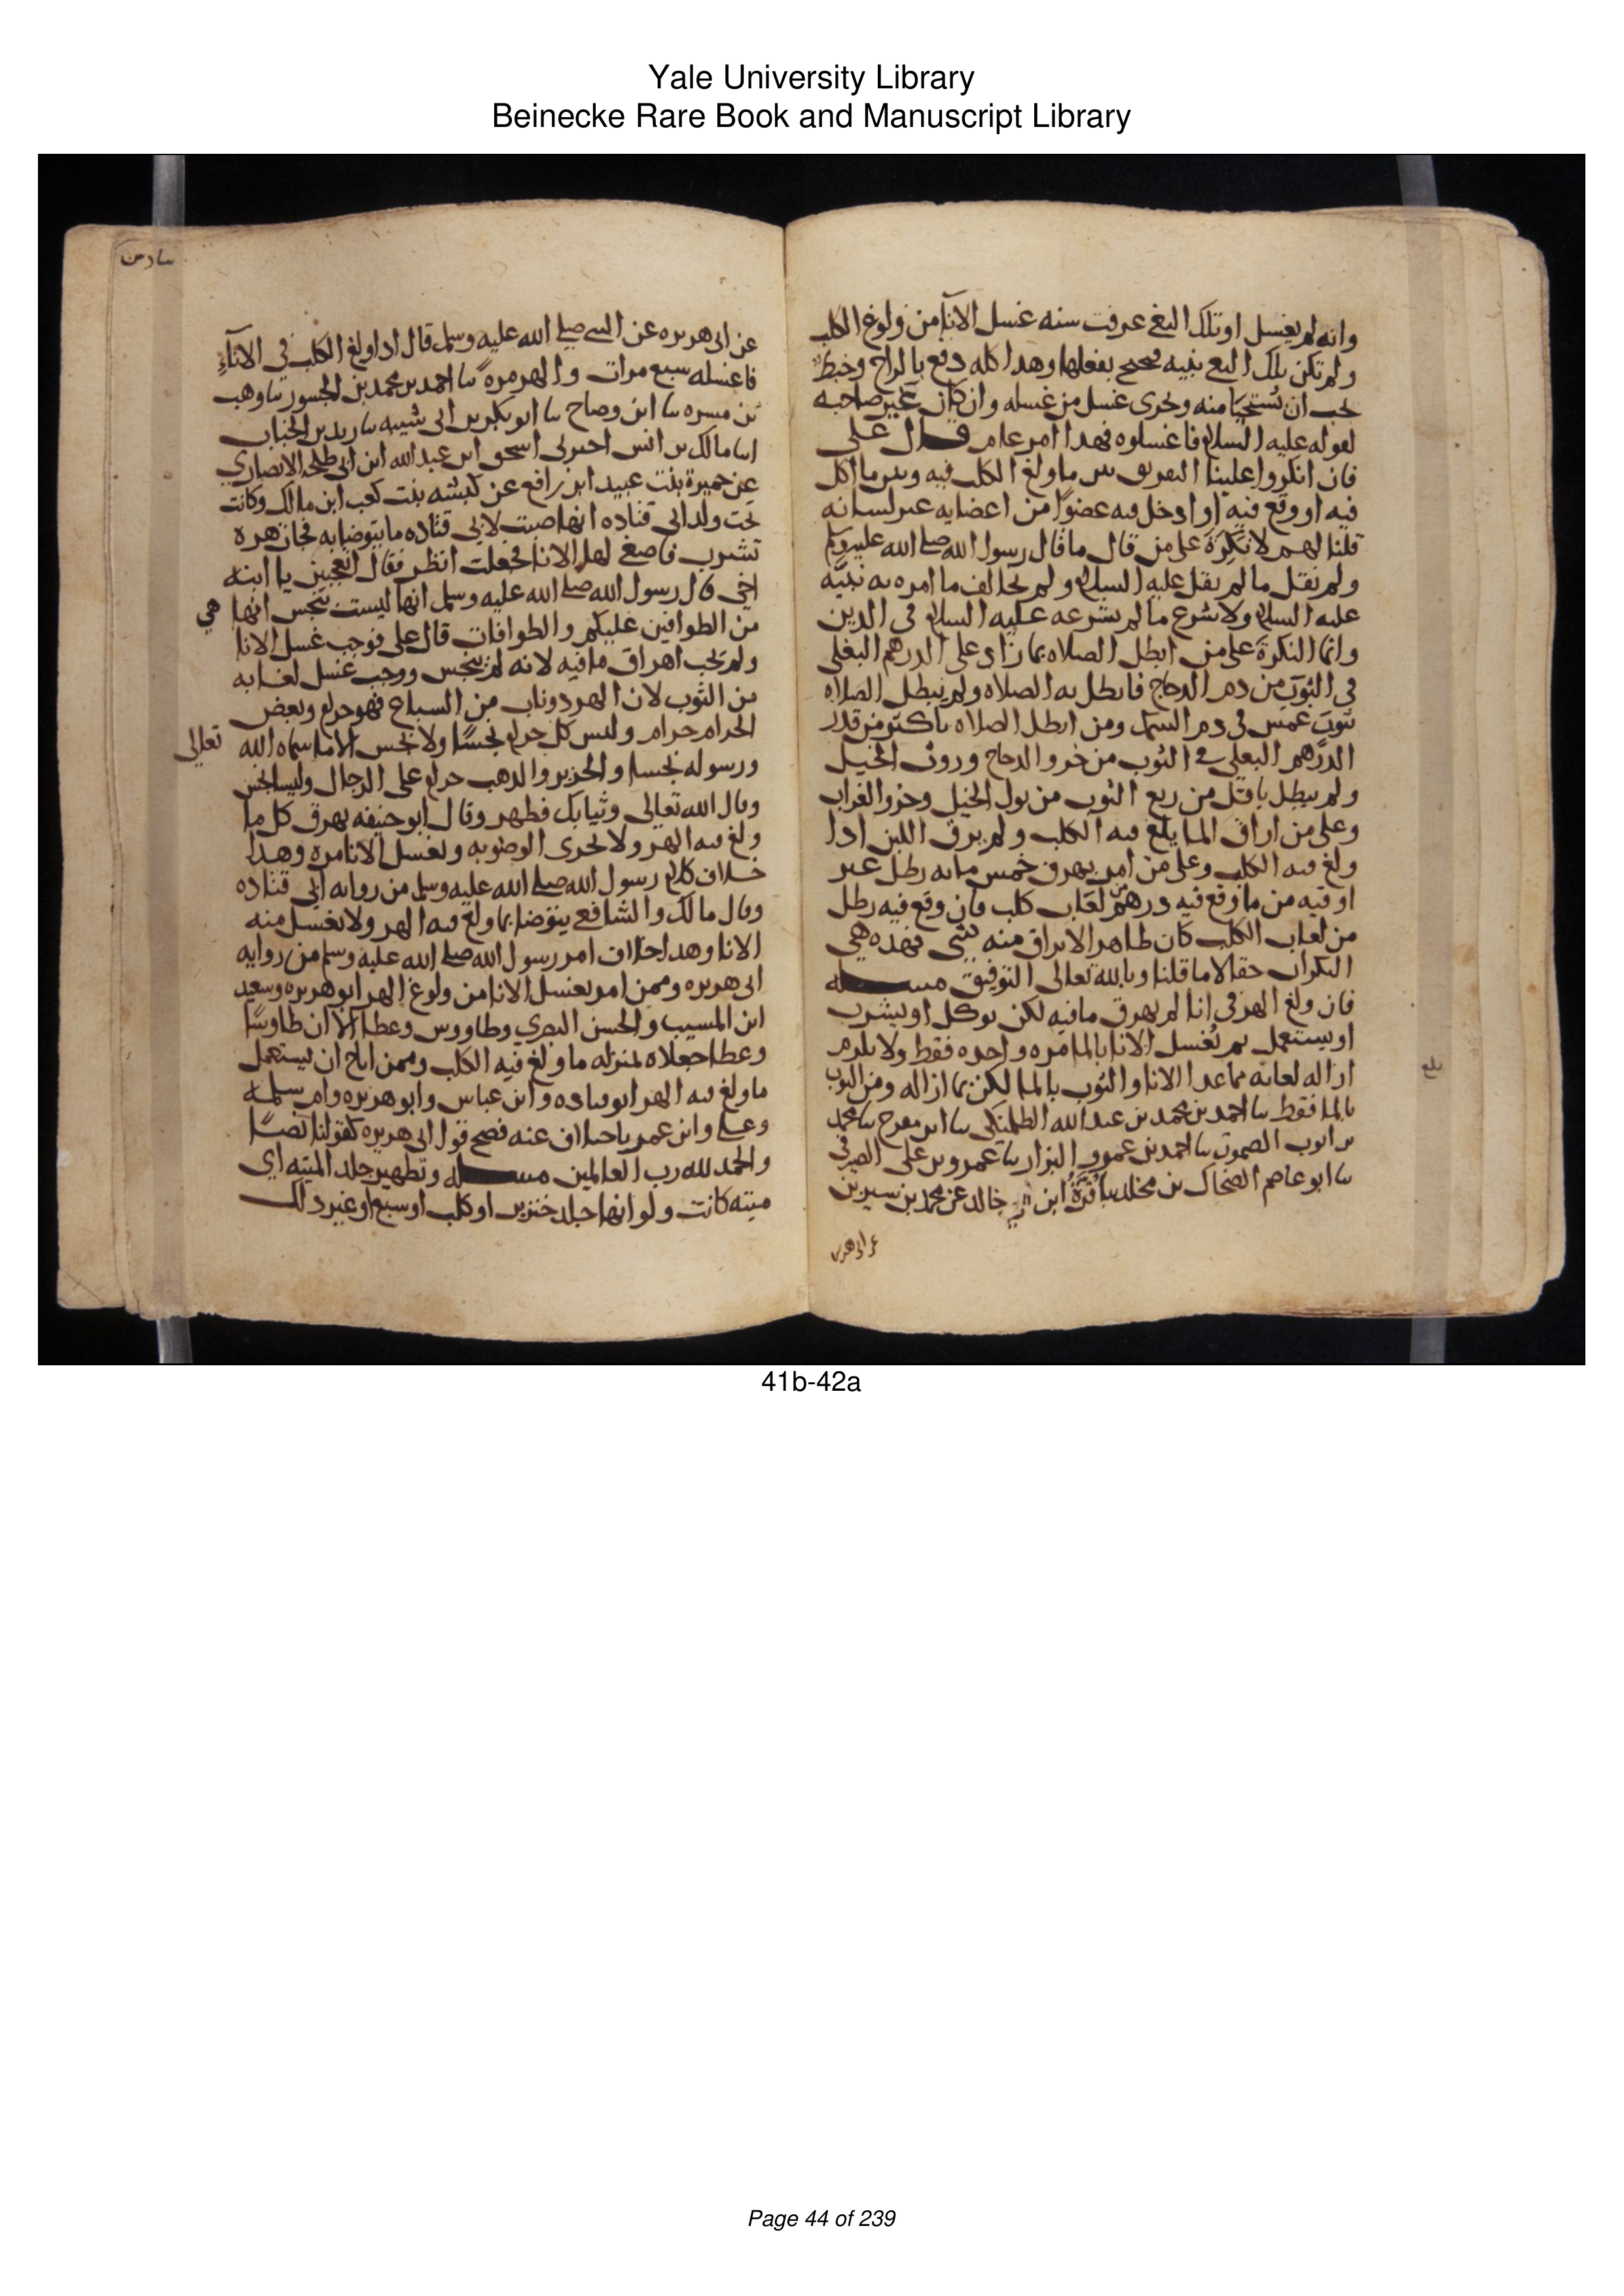 Yale University Library
Beinecke Rare Book and Manuscript Library
وانه لم يغسل او تلك البغى عرفت سنه غسل الانآ من ولوغ الكلب
ولم تكن تلك البغى بنيه فيحتج بفعلها وهدا كله دفع بالراح وخبط
يجب ان يستحيا منه ويجزى غسل من غسله وان كان غير صاحبه
لقوله عليه السلام فاغسلوه فهدا امر عام قال على
فان انكروا علينا التفريق بين ما ولغ الكلب فيه وبين ما اكل
فيه او وقع فيه او ادخل فيه عضوًا من اعضايه غير لسانه
قلنا لهم لا نكرة على من قال ما قال رسول الله صلى الله عليه وسلم
ولم يقل ما لم يقل عليه السلام ولم يخالف ما امره به نبيه
عليه السلام ولا شرع ما لم يشرعه عليه السلام فى الدين
وانما النكرة على من ابطل الصلاه بما زاد على الدرهم البغلى
فى الثوب من دم الدجاج فابطل به الصلاه ولم يبطل الصلاه
بثوب غمس فى دم السمك ومن ابطل الصلاه باكثر من قدر
الدرهم البغلى فى الثوب من خرو الدجاج وروث الخيل
ولم يبطل باقل من ربع الثوب من بول الخيل وخرو الغراب
وعلى من اراق الما يلغ فيه الكلب ولم يرق اللبن ادا
ولغ فيه الكلب وعلى من امر بهرق خمس مايه رطل غير
اوقيه من ما وقع فيه درهم من لعاب كلب فان وقع فيه رطل
من لعاب الكلب كان طاهرا لا يراق منه شى فهذه هى
النكرات حقا لا ما قلنا وبالله تعالى التوفيق مسله
فان ولغ الهر فى انا لم يهرق ما فيه لكن يوكل او يشرب
او يستعمل ثم يُغسل الانا بالما مره واحده فقط ولا يلزم
ازاله لعابه مما عدا الانا والثوب بالما لكن بما ازاله ومن الثوب
بالما فقط نا احمد بن محمد بن عبد الله الطلمنكى نا ابن مفرج نا محمد
بن ايوب الصموت نا احمد بن عمرو البزار نا عمرو بن على الصيرفى
نا ابو عاصم الضحاك بن مخلد نا قرة ابن خالد عن محمد بن سيرين
عن ابى هريره
عن ابى هريره عن النبى صلى الله عليه وسلم قال ادا ولغ الكلب فى الانآء
فاغسله سبع مرات والهر مرة نا احمد بن محمد بن الجسور نا وهب
بن مسره نا ابن وضاح نا ابو بكر بن ابى شيبه نا زيد بن الحباب
انا مالك بن انس اخبرنى اسحق ابن عبد الله ابن ابى طلحه الانصارى
عن حميرة بنت عبيد ابن رافع عن كبشه بنت كعب ابن مالك وكانت
تحت ولد ابى قتاده انها صبت لابى قتاده ما يتوضا به فجات هرة
تشرب فاصغى لها الانا فجعلت انظر فقال اتعجبين يا ابنه
اخى قال رسول الله صلى الله عليه وسلم انها ليست بنجس انها هى
من الطوافين عليكم والطوافات قال على فوجب غسل الانا
ولم يجب اهراق ما فيه لانه لم ينجس ووجب غسل لعابه
من الثوب لان الهر دوناب من السباع فهو حرام وبعض
الحرام حرام وليس كل حرام نجسًا ولا نجس الا ما سماه الله تعالى
ورسوله نجسا والخنزير والدهب حرام على الرجال وليسا نجس
وقال الله تعالى وثيابك فطهر وقال ابو حنيفه يهرق كل ما
ولغ فيه الهر ولا يجزى الوضو به ويغسل الانا مره وهدا
خلاف كلام رسول الله صلى الله عليه وسلم من روايه ابى قتاده
وقال مالك والشافعى يتوضا بما ولغ فيه الهر ولا يغسل منه
الانا وهدا خلاف امر رسول الله صلى الله عليه وسلم من روايه
ابى هريره وممن امر بغسل الانا من ولوغ الهر ابو هريره وسعيد
ابن المسيب والحسن البصرى وطاووس وعطا الا ان طاوسًا
وعطا جعلاه بمنزله ما ولغ فيه الكلب وممن اباح ان يستعمل
ما ولغ فيه الهر ابو قتاده وابن عباس وابو هريره وام سلمه
وعلى وابن عمر باختلاف عنه فصح قول ابى هريره كقولنا نصًا
والحمد لله رب العالمين مسله وتطهير جلد الميته اى
ميته كانت ولو انها جلد خنزير او كلب او سبع او غير دلك
41b-42a
Page 44 of 239